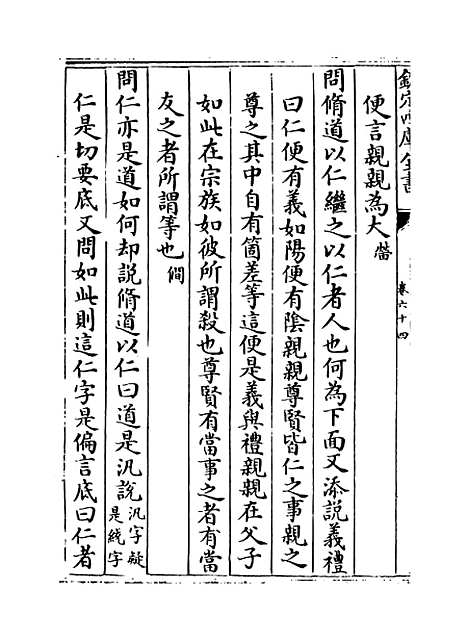 欽定四庫全書
卷六十四
便言親親為大㽦
問脩道以仁繼之以仁者人也何為下面又添説義禮
曰仁便有義如陽便有陰親親尊賢皆仁之事親之
尊之其中自有箇差等這便是義與禮親親在父子
如此在宗族如彼所謂殺也尊賢有當事之者有當
友之者所謂等也僩
問仁亦是道如何却説脩道以仁曰道是汎説汎字疑是統字
仁是切要底又問如此則這仁字是偏言底曰仁者